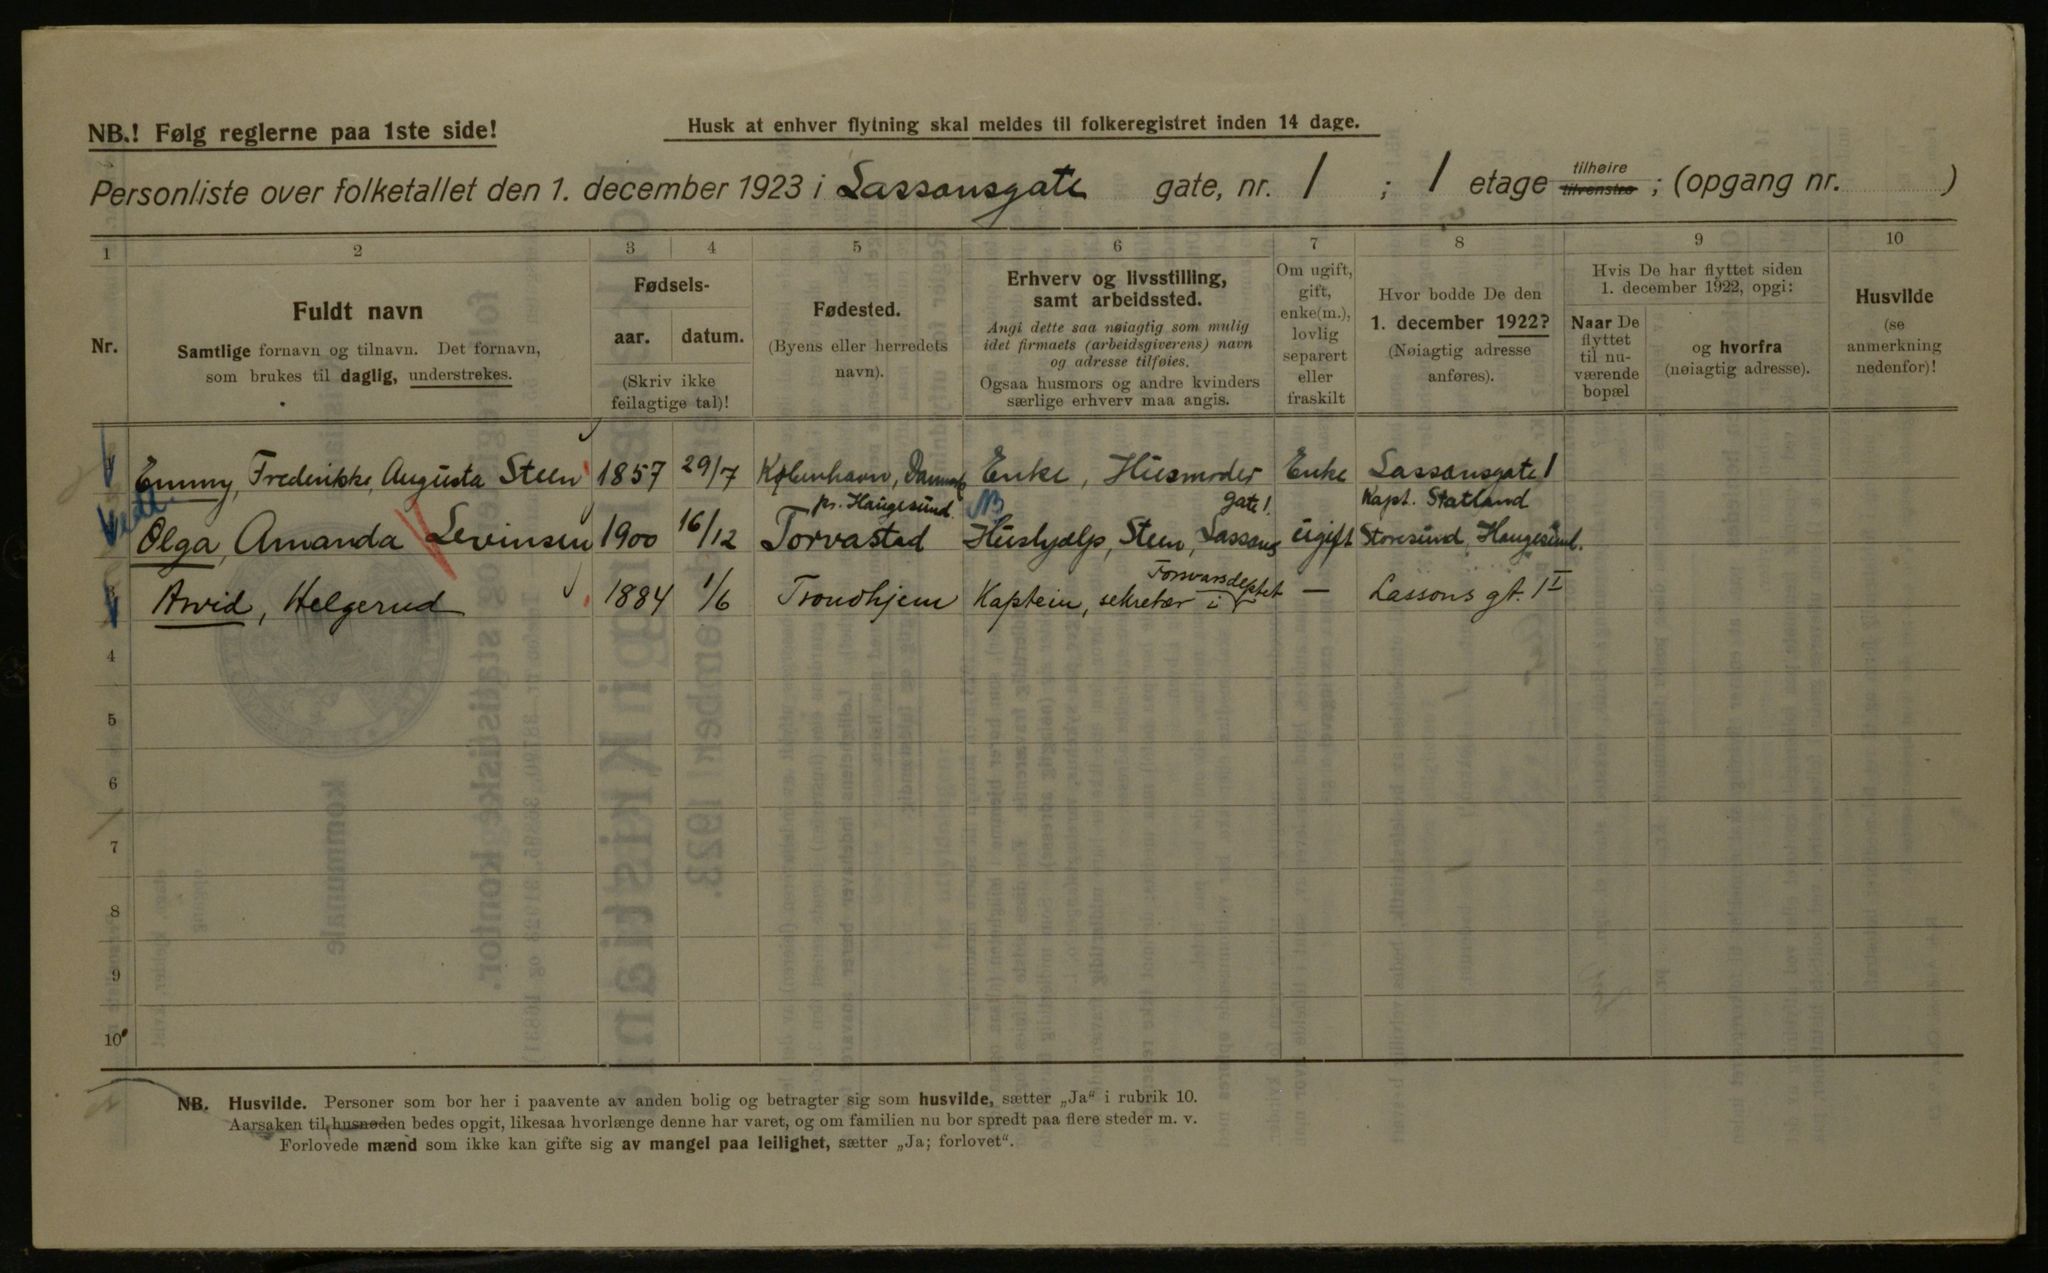 NB.! Følg reglerne paa 1ste side!
Husk at enhver flytning skal meldes til folkeregistret inden 14 dage.
Personliste over folketallet den 1. december 1923 i Lassonsgate gate, nr. 1 ; 1 etage tilhøire tilvenstre ; (opgang nr. )
1 2 3 4 5 6 7 8 9 10
Nr.
Fuldt navn
Samtlige fornavn og tilnavn. Det fornavn,
som brukes til daglig, understrekes.
Fødsels-
aar. datum.
(Skriv ikke
feilagtige tal)!
Fødested.
(Byens eller herredets
navn).
Erhverv og livsstilling,
samt arbeidssted.
Angi dette saa nøiagtig som mulig
idet firmaets (arbeidsgiverens) navn
og adresse tilføies.
Ogsaa husmors og andre kvinders
særlige erhverv maa angis.
Om ugift,
gift,
enke(m.),
lovlig
separert
eller
fraskilt
Hvor bodde De den
1. december 1922?
(Nøiagtig adresse
anføres).
Hvis De har flyttet siden
1. december 1922, opgi:
Naar De
flyttet
til nu-
værende
bopæl
og hvorfra
(nøiagtig adresse).
Husvilde
(se
anmerkning
nedenfor)!
Emmy, Frederikke, Augusta Steen 1857 29/7 København, Danmark Enke, Husmoder Enke Lassonsgate 1
pr. Haugesund. NB gate 1. Kapt. Statland
Olga, Amanda Levinsen 1900 16/12 Torvastad Hushjælp, Steen, Lassons ugift Storesund, Haugesund.
Forsvarsdeptet
3 Arvid, Helgerud 1884 1/6 Trondhjem Kaptein, sekretær i — Lassons gt. 1 I
4
5
6
7
8
9
10
NB. Husvilde. Personer som bor her i paavente av anden bolig og betragter sig som husvilde, sætter „Ja“ i rubrik 10.
Aarsaken til husnøden bedes opgit, likesaa hvorlænge denne har varet, og om familien nu bor spredt paa flere steder m. v.
Forlovede mænd som ikke kan gifte sig av mangel paa leilighet, sætter „Ja; forlovet“.